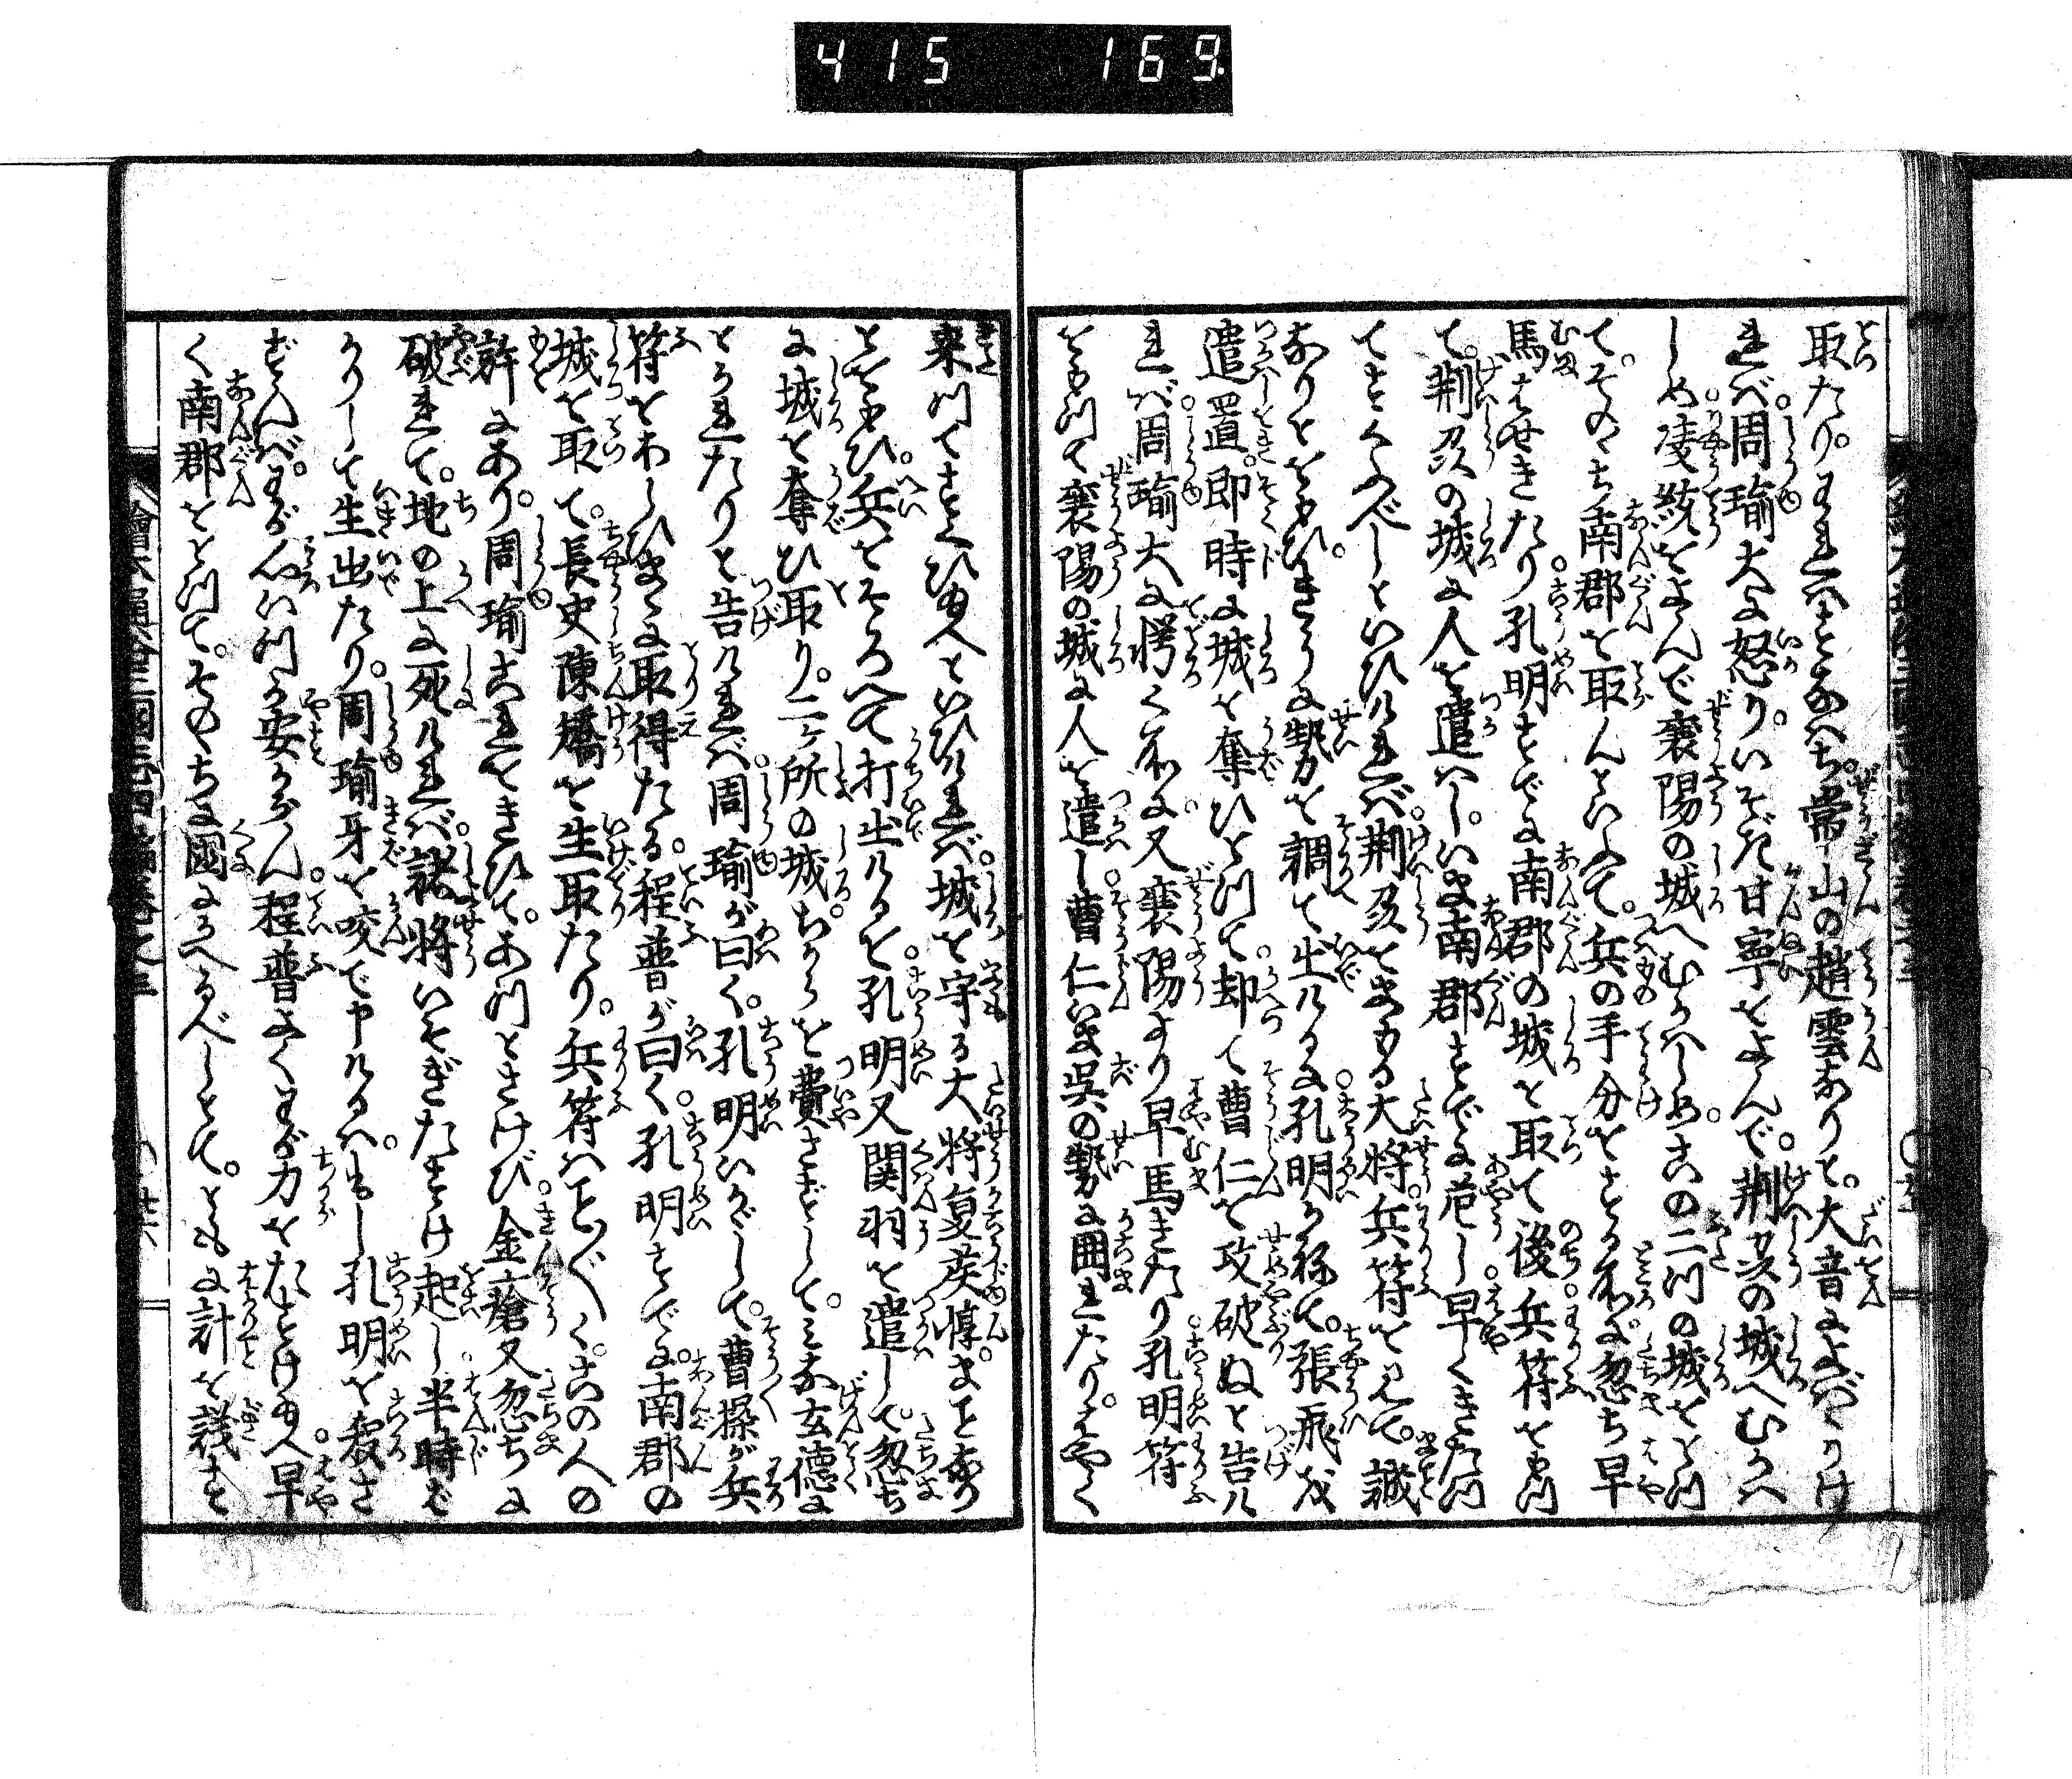 415 169
取たり。われハこれすなハち。常山の趙雲なりと。大音によばゝりけ
れバ。周瑜大に怒り。いそぎ甘寧をよんで。荊州の城へむかハ
しめ。凌統をよんで襄陽の城へむかハしめ。この二ツの城をとつ
て。そのゝち南郡を取んといふて。兵の手分をする所に。忽ち早
馬はせきたり。孔明すでに南郡の城を取て後。兵符をもつ
て。荊州の城に人を遣ハし。いま南郡すでに危し。早くきたつ
てすくふべしといひければ。荊州をまもる大将。兵符を見て。誠
なりとをもひ。きうに勢を調て出けるに。孔明かねて。張飛を
遣し置。即時に城を奪ひとつて。却て曹仁を攻破ぬと告け
れバ。周瑜大に愕く所に。又襄陽より早馬きたり。孔明符
をもつて襄陽の城に人を遣し。曹仁いま呉の勢に囲れたり。はやく
来つてすくひ給へといひければ。城を守る大将夏侯惇。まことなり
とをもひ。兵をそろへて打出けるを。孔明又関羽を遣して。忽ち
に城を奪ひ取り。二ケ所の城。ちからを費さずして。みな玄徳に
とられたりと告ければ。周瑜が曰く。孔明いかゞして。曹操が兵
符をわしひまゝに取得たる。程普が曰く。孔明すでに。南郡の
城を取て。長史陳矯を生取たり。兵符ハことごとく。この人の
許にあり。周瑜これをきひて。あつとさけび。金瘡又忽ちに
破れて。地の上に死ければ。諸将いそぎたすけ起し。半時ば
かりして生出たり。周瑜牙を咬で申けるハ。もし孔明を殺さ
ずんバ。わが心いつか安からん。程普よくわが力をたすけ給へ。早
く南郡をとつて。そのゝちに國にかへるべしとて。ともに計を議す